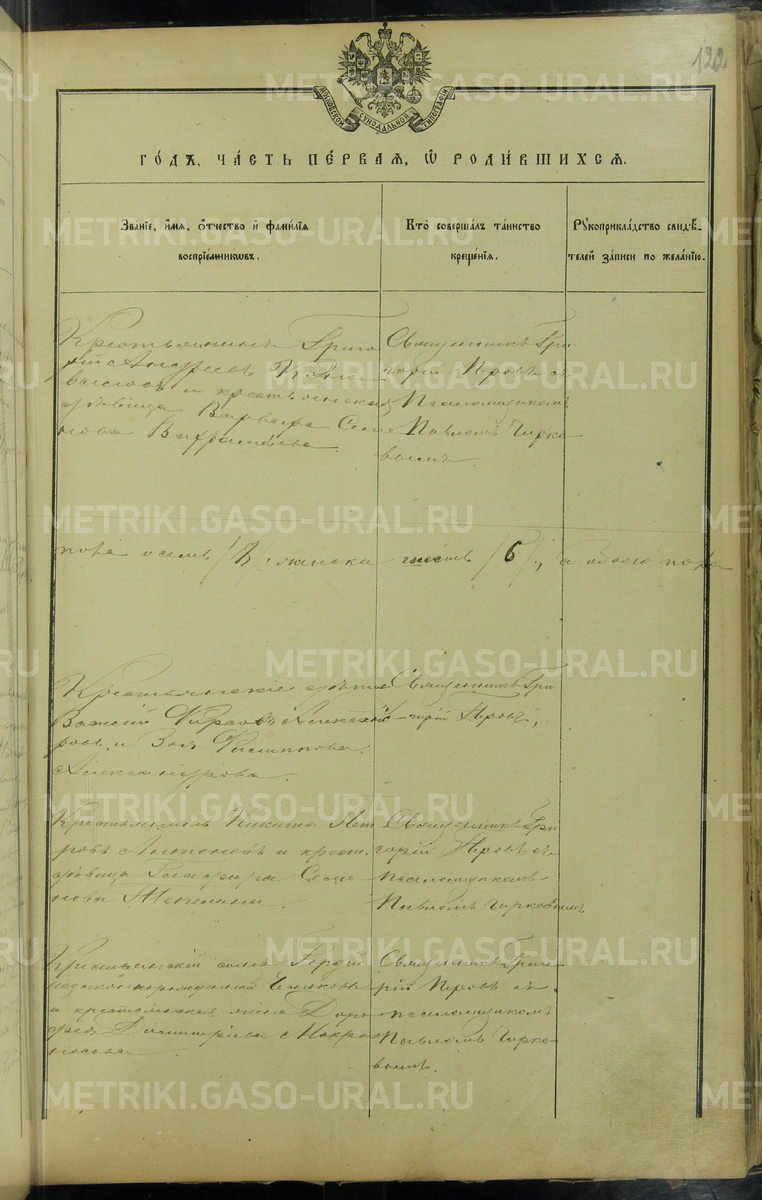 122
МОСКОВСКОЙ СѴНОДАЛЬНОЙ ТИПОГРАФІИ
ГО́ДЪ, ЧА́СТЬ ПЕ́РВАЯ, Ѿ РОДИ́ВШИХСЯ.
Зва́нїе, и́мя, о́тчество и҆ фами́лїя
воспрїе́мникωвъ.
Кто̀ соверша́лъ та́инство
креще́нїя.
Рꙋкоприкла́дство свидѣ́-
телей за́писи по жела́нїю.
Крестьянинъ Григо
рій Андреевъ
и крестьянская
дѣвица Варвара Семе
нова
Священникъ Гри
горій Яровъ съ
Псаломщикомъ
Павломъ Чирко-
вымъ
пола осмь /8/, женска шесть /6/, а обоего пола
Крестьянскіе дѣти
Василій Фирсовъ Александ
ровъ и Зоя Филиппова
Александрова.
Священникъ Гри
горій Яровъ,
Крестьянинъ Никита Пет
ровъ Антоновъ и крест.
дѣвица Глафира Семе
нова
Священникъ Гри
горій Яровъ съ
псаломщикомъ
Павломъ Чирковымъ
Крестьянскій сынъ
и крестьянская жена Доро
фея Димитріева Мокро
носова
Священникъ Григо
рій Яровъ съ
псаломщикомъ
Павломъ Чирко-
вымъ.
METRIKI.GASO-URAL.RU